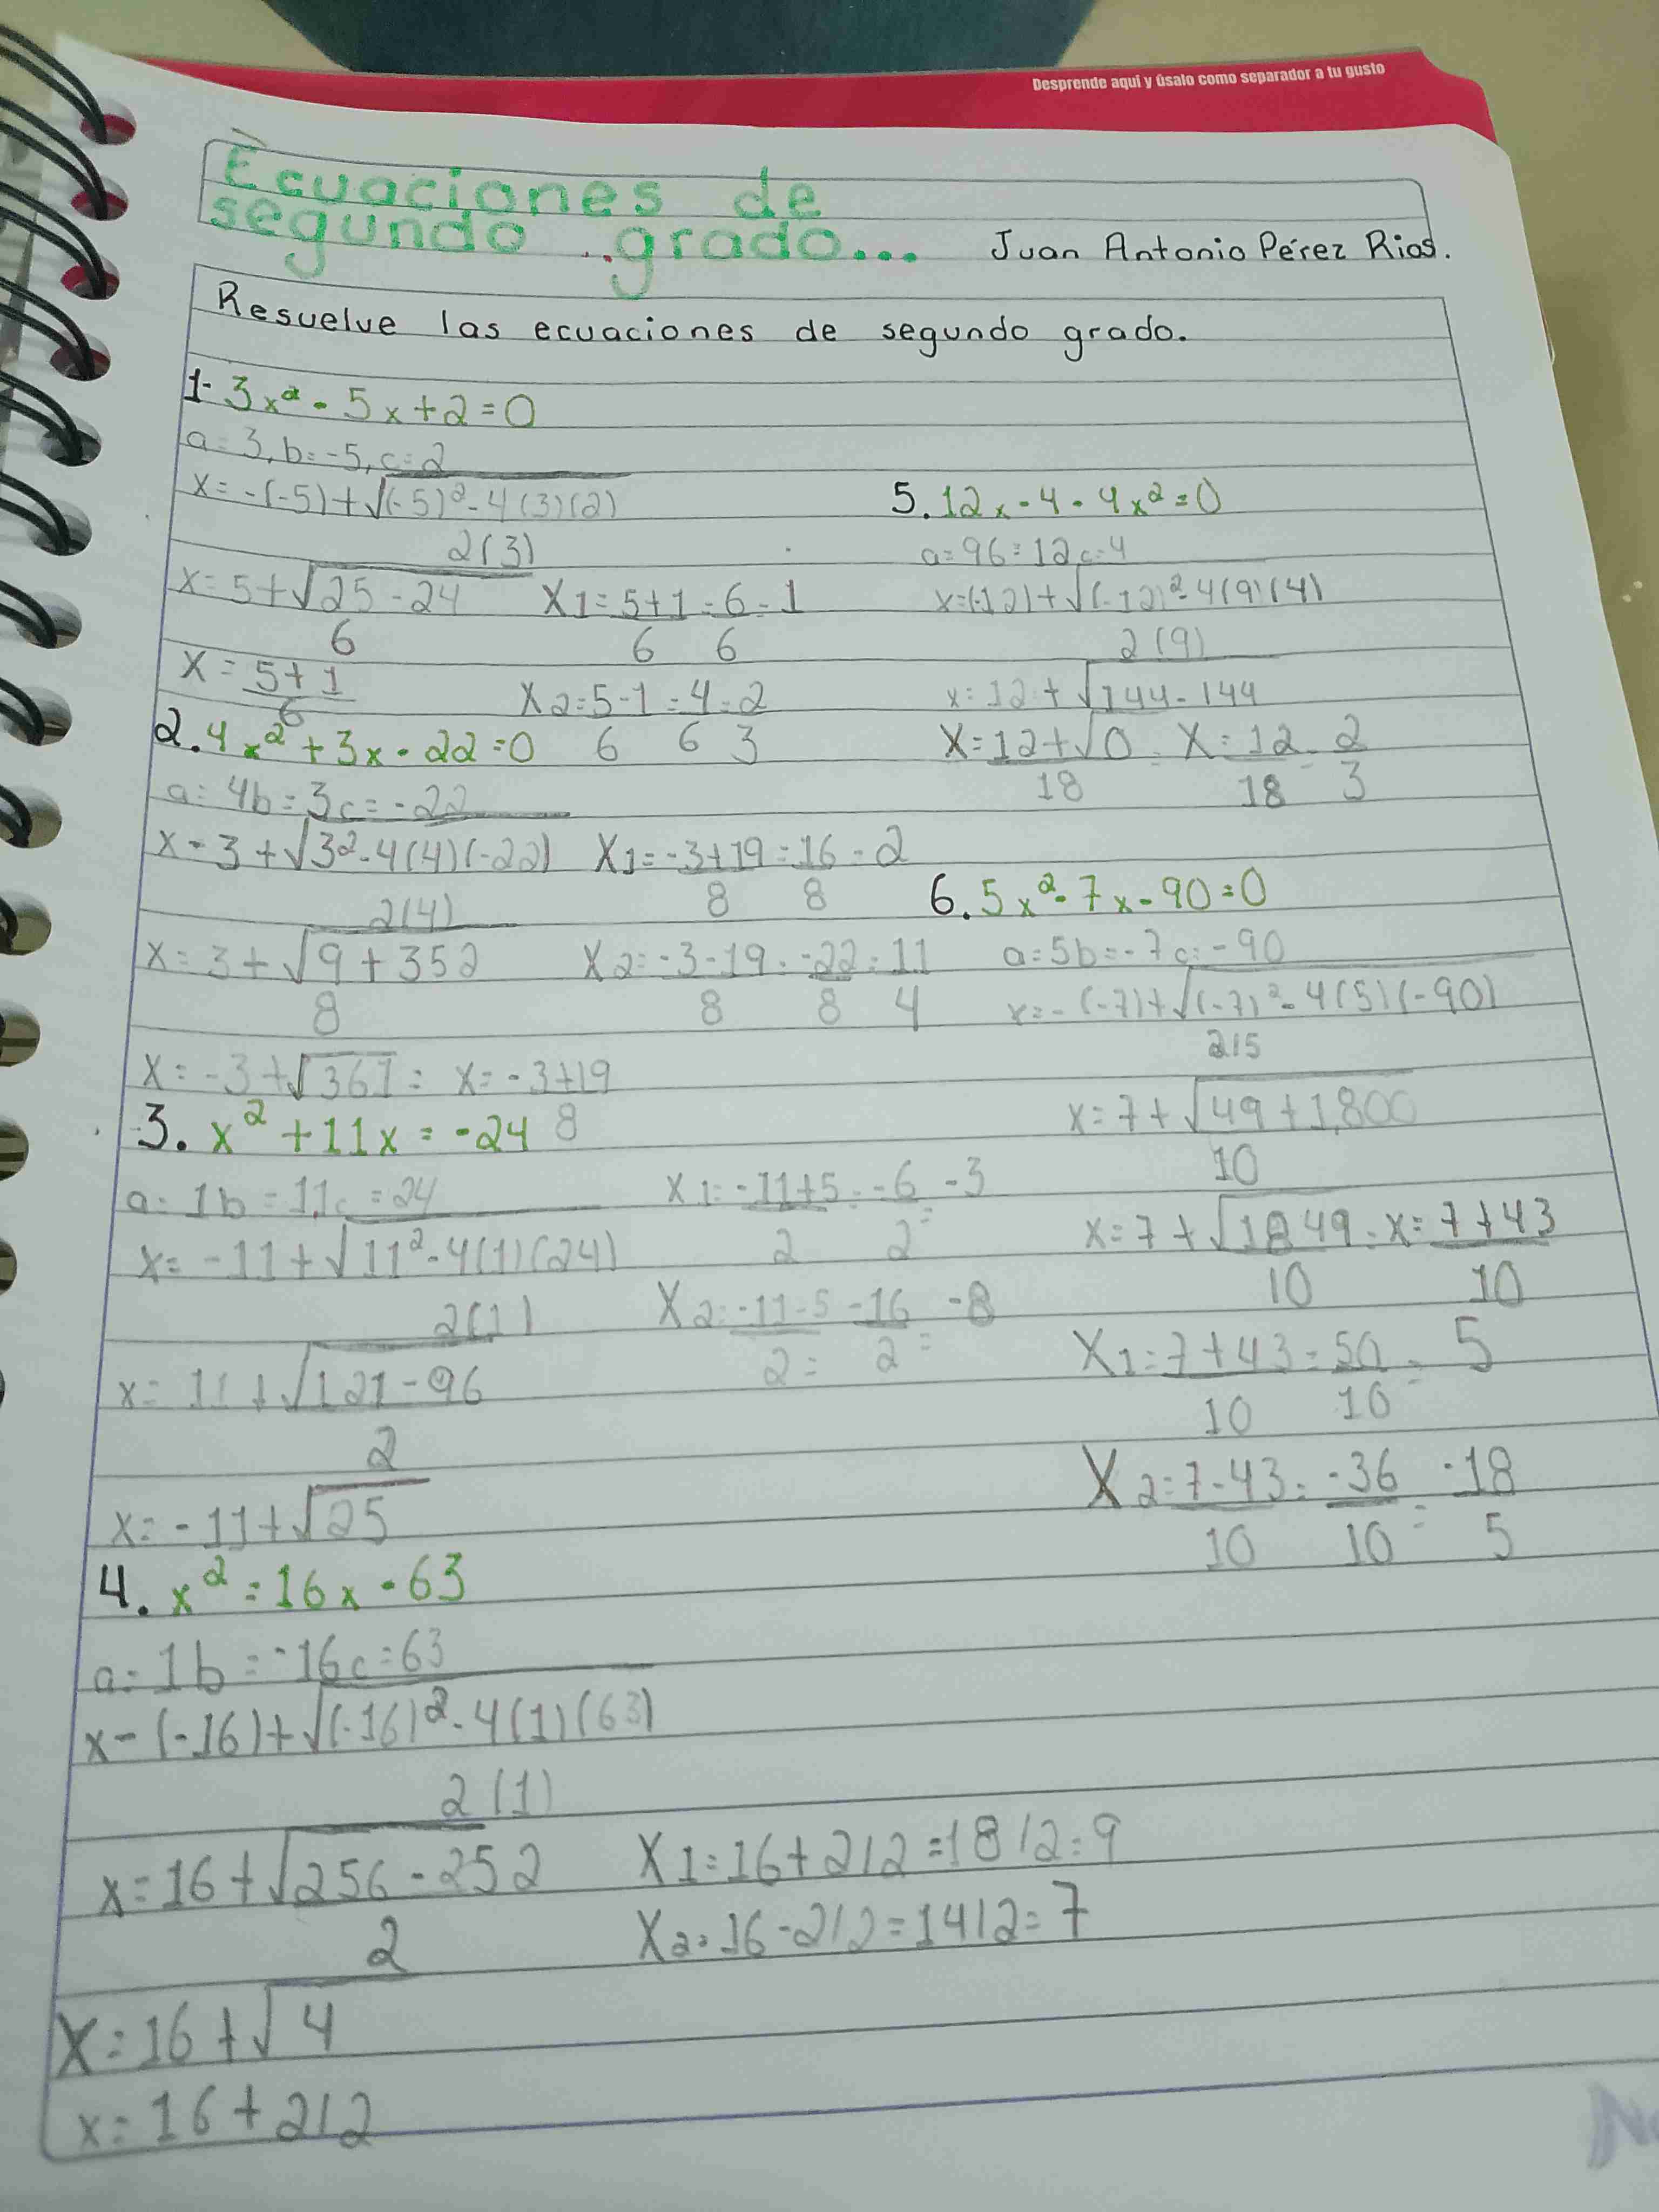 Desprende aquí y úsalo como separador a tu gusto
Ecuaciones de
segundo ..grado...
Juan Antonio Pérez Rios.
Resuelve las ecuaciones de segundo grado.
1- 3x² - 5x + 2 = 0
a = 3, b = -5, c = 2
x = -(-5) + √(-5)² - 4(3)(2)
2(3)
x = 5 + √25 - 24
6
x = 5 + 1
6
X1 = 5 + 1 = 6 = 1
6 6
X2 = 5 - 1 = 4 = 2
6 6 3
2. 4x² + 3x - 22 = 0
a = 4b = 3c = -22
x - 3 + √3² - 4(4)(-22)
2(4)
x = 3 + √9 + 352
8
x = -3 + √361 = x = -3 + 19
8
X1 = -3 + 19 = 16 = 2
8 8
X2 = -3 - 19 = -22 = 11
8 8 4
3. x² + 11x = -24
a = 1b = 11, c = 24
x = -11 + √11² - 4(1)(24)
2(1)
x = 11 + √121 - 96
2
x = -11 + √25
X1 = -11 + 5 = -6 = -3
2 2
X2 = -11 - 5 = -16 = -8
2 2
4. x² = 16x - 63
a = 1b = -16c = 63
x - (-16) + √(-16)² - 4(1)(63)
2(1)
x = 16 + √256 - 252
2
X = 16 + √4
x = 16 + 2/2
X1 = 16 + 2/2 = 18/2 = 9
X2 = 16 - 2/2 = 14/2 = 7
5. 12x - 4 - 4x² = 0
a = 96 = 12c = 4
x = (-12) + √(-12)² - 4(9)(4)
2(9)
x = 12 + √144 - 144
X = 12 + √0 = X = 12 = 2
18 18 3
6. 5x² - 7x - 90 = 0
a = 5b = -7c = -90
x = -(-7) + √(-7)² - 4(5)(-90)
215
x = 7 + √49 + 1,800
10
x = 7 + √1849 = x = 7 + 43
10 10
X1 = 7 + 43 = 50 = 5
10 10
X2 = 7 - 43 = -36 = -18
10 10 5